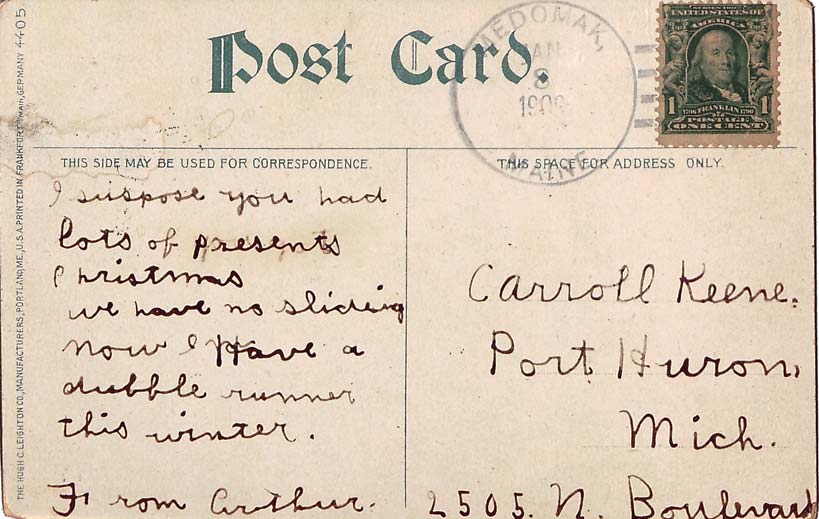 Post Card.
MEDOMAK,
JAN
8
MAINE
SERIES 1902
UNITED STATES OF
AMERICA
1
1706 FRANKLIN 1790
1
POSTAGE
ONE CENT
THIS SIDE MAY BE USED FOR CORRESPONDENCE.
THIS SPACE FOR ADDRESS ONLY.
I suspose you had
lots of presents
Christmas
we have no slideing
now I Have a
dubble runner
this winter.
From Arthur.
Carroll Keene.
Port Huron,
Mich.
2505. N. Boulevard
THE HUGH C. LEIGHTON CO., MANUFACTURERS, PORTLAND, ME., U.S.A. PRINTED IN FRANKFORT MAIN, GERMANY 4405